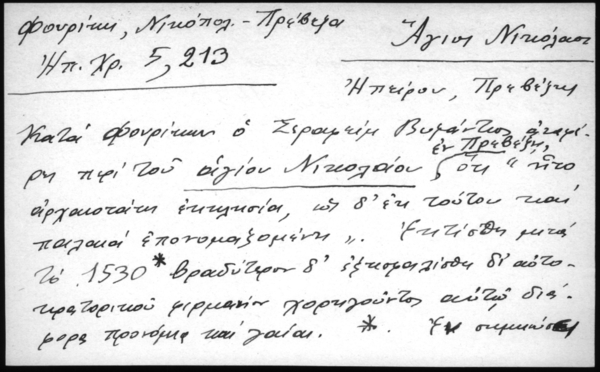 Φουρίκη, Νικόπολ. - Πρέβεζα
Ἅγιος Νικόλαος
Ἠπ. Χρ. 5, 213
Ἠπείρου, Πρεβέζης
Κατά Φουρίκην ὁ Σεραφείμ Βυζάντιος ἀναφέ-
ρει περί τοῦ ἁγίου Νικολάου ἐν Πρεβέζῃ, ὅτι "ἦτο
ἀρχαιοτάτη ἐκκλησία, ὡς δ' ἐκ τούτου καί
παλαιά ἐπονομαζομένη". Ἐκτίσθη μετά
τό 1530 * βραδύτερον δ' ἐξησφαλίσθη δι' αὐτο-
κρατορικοῦ φιρμανίου χορηγοῦντος αὐτῷ διά-
φορα προνόμια καί γαίας. *. Ἐν σημειώσει